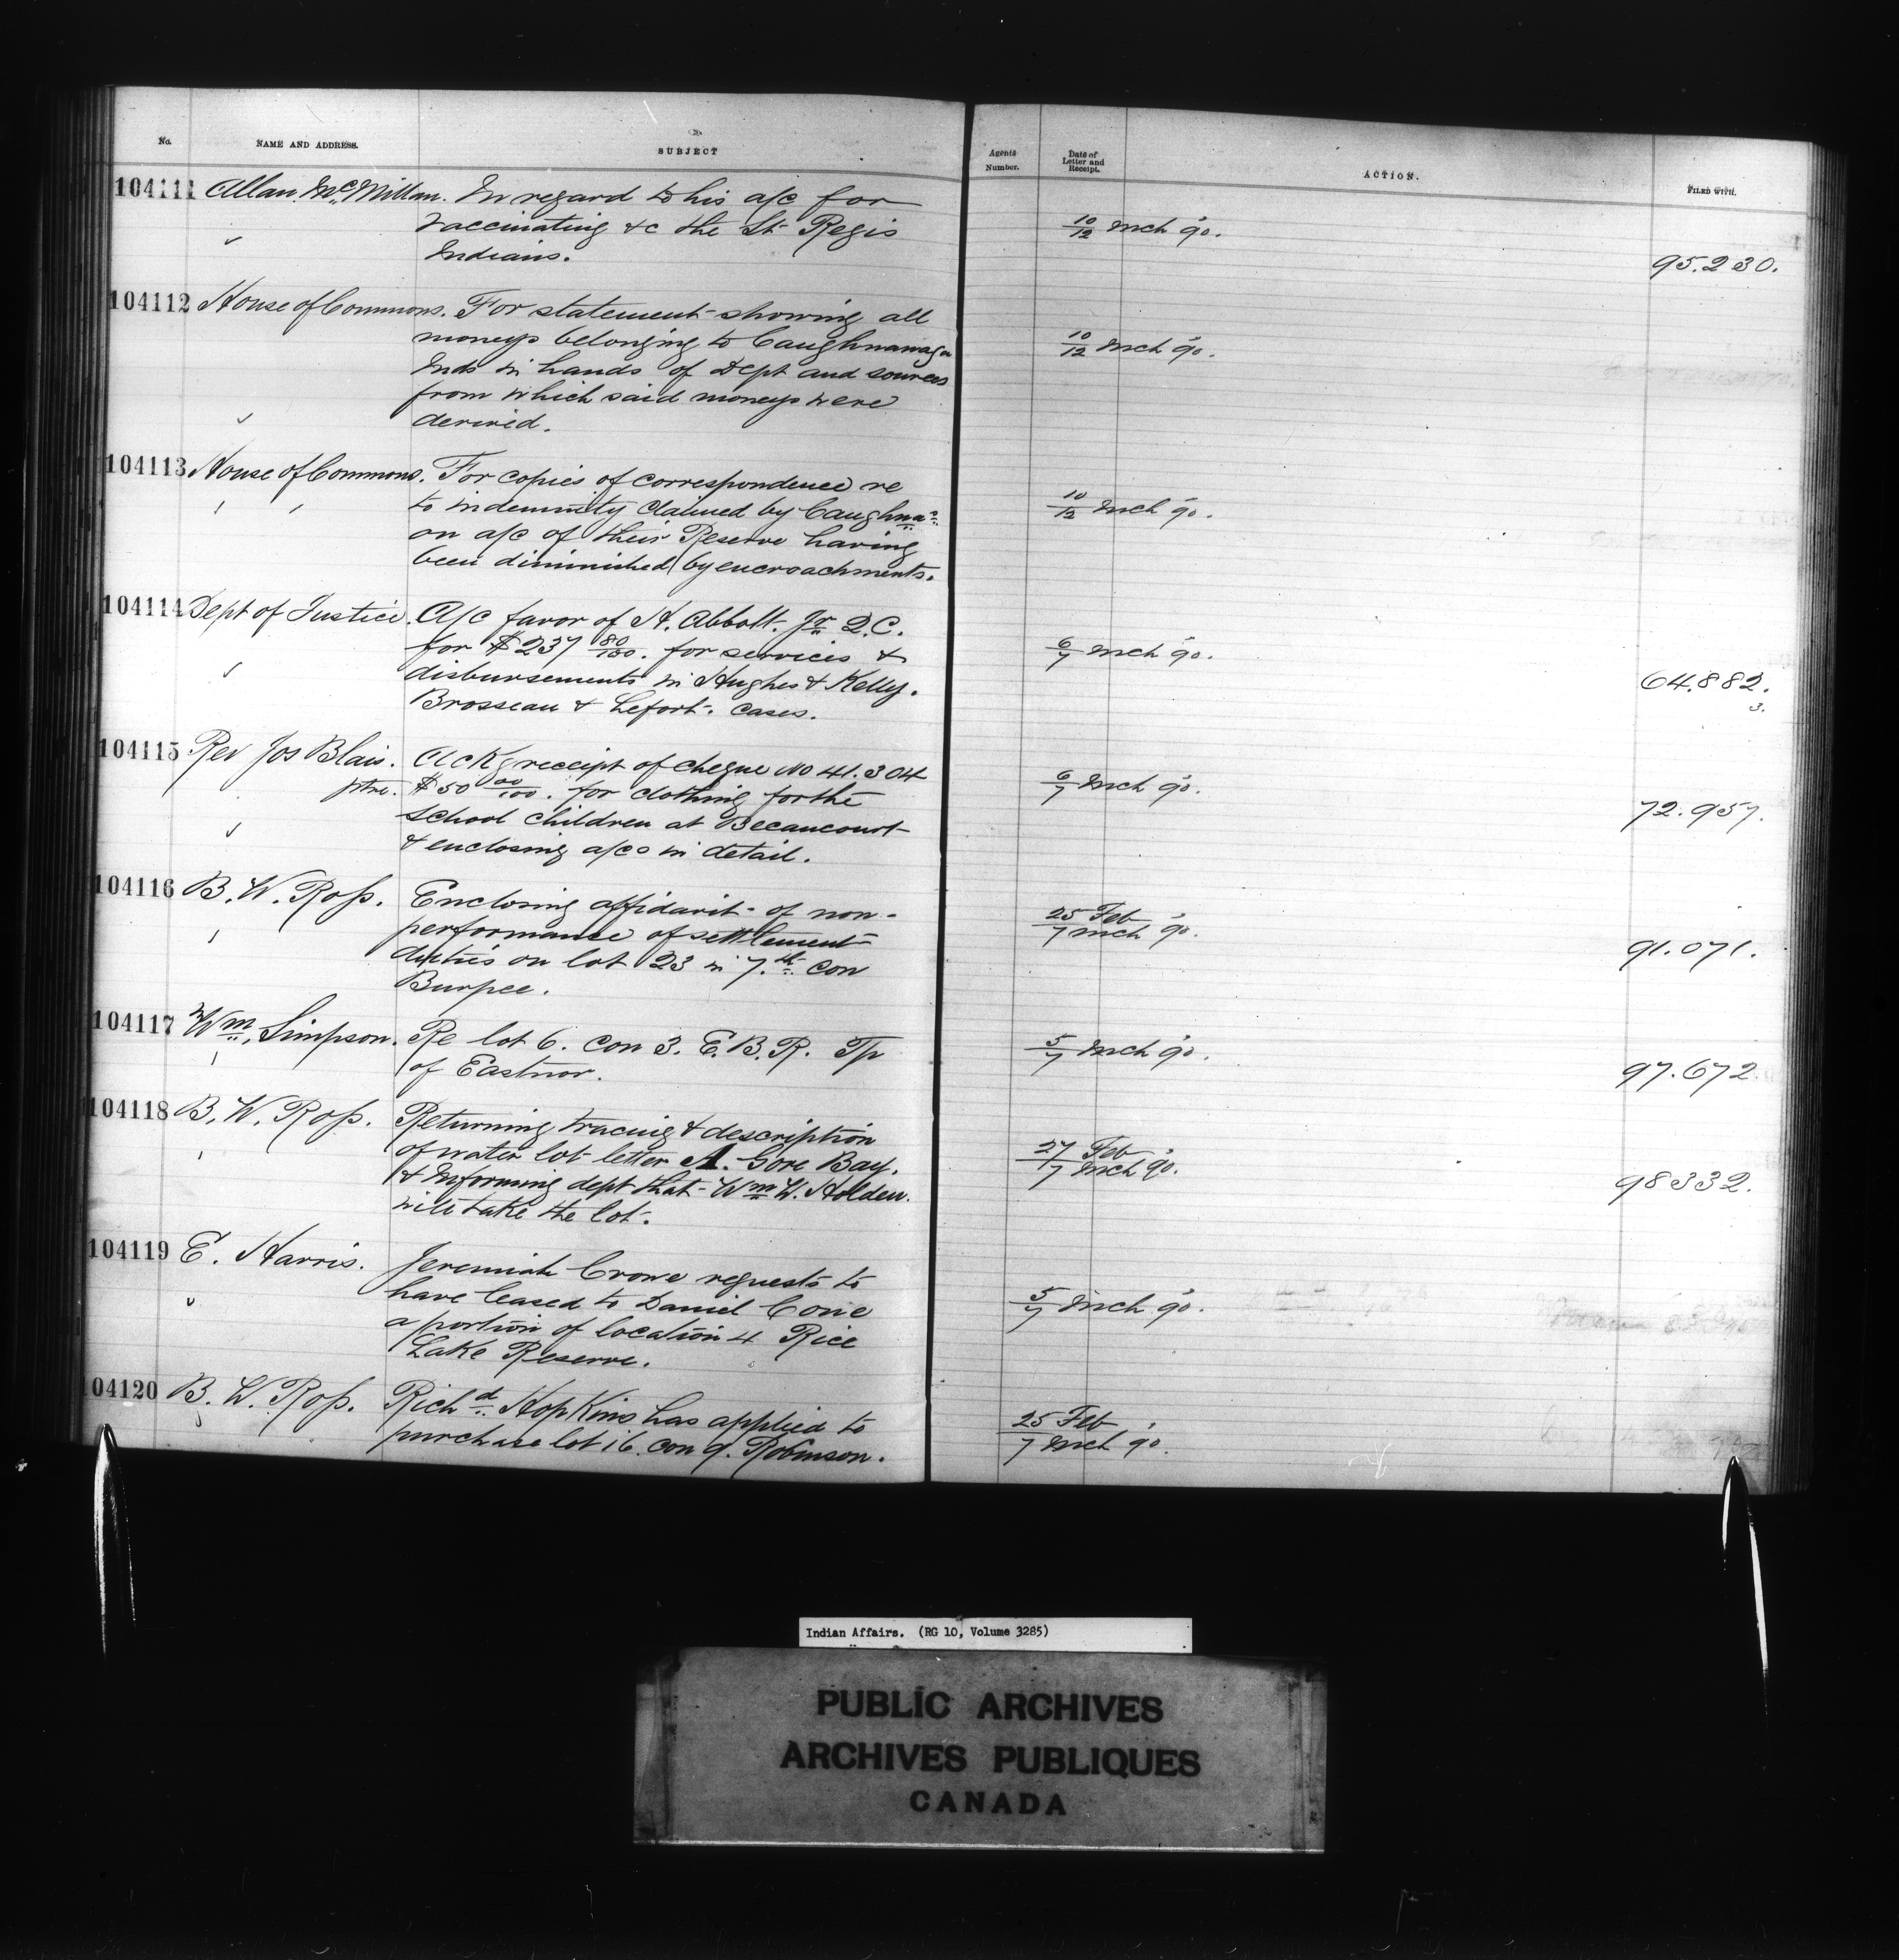 No. NAME AND ADDRESS. SUBJECT Agents Number. Date of Letter and Receipt. ACTION. FILED WITH.
104111 Allan McMillan. In regard to his a/c for
vaccinating &c the St Regis 10/12 Mch 90.
Indians. 95.230.
104112 House of Commons. For statement showing all
moneys belonging to Caughnawaga 10/12 Mch 90.
Inds in hands of Dept and sources
from which said moneys were
derived.
104113 House of Commons. For copies of correspondence re
to indemnity claimed by Caughna 10/12 Mch 90.
on a/c of their Reserve having
been diminished by encroachments.
104114 Dept of Justice. A/c favor of H. Abbott. Jr Q.C.
for $237 80/100. for services & 6/7 Mch 90.
disbursements in Hughes & Kelly. 64.882.
Brosseau & Lefort. cases. 3.
104115 Rev Jos Blais. Ackg receipt of cheque No 41.304
ptre. $50 00/100. for clothing for the 6/7 Mch 90.
school children at Becancourt 72.957.
& enclosing a/cs in detail.
104116 B. W. Ross. Enclosing affidavit of non-
performance of settlement 25 Feb/7 Mch 90.
duties on lot 23 in 7.th con 91.071.
Burpee.
104117 Wm Simpson. Re lot 6. con 3. E.B.R. Tp 5/7 Mch 90.
of Eastnor. 97.672
104118 B. W. Ross. Returning tracing & description
of water lot letter A. Gore Bay. 27 Feb/7 Mch 90.
& informing dept that Wm W. Holden. 98332.
will take the lot.
104119 E. Harris. Jeremiah Crowe requests to
have leased to Daniel Cone 5/7 Mch 90.
a portion of location 4 Rice
Lake Reserve.
104120 B. W. Ross. Richd Hopkins has applied to 25 Feb
purchase lot 16. con 9. Robinson. 7 Mch 90.
Indian Affairs. (RG 10, Volume 3285)
PUBLIC ARCHIVES
ARCHIVES PUBLIQUES
CANADA